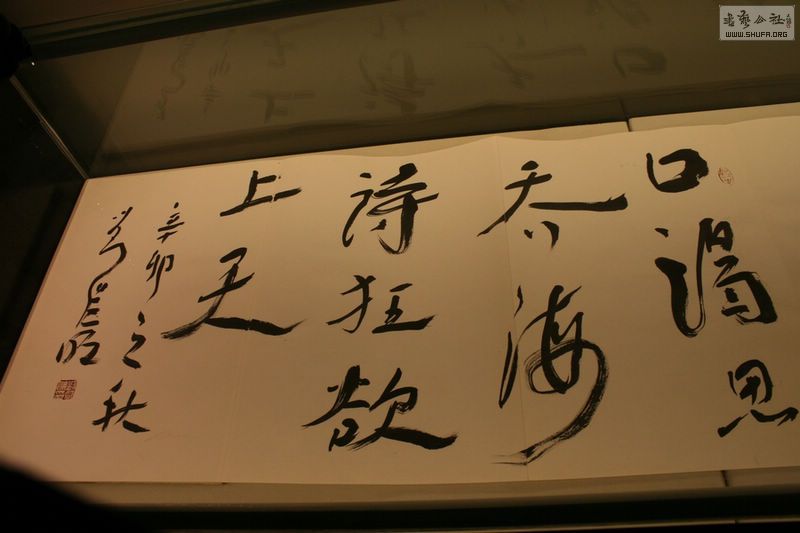 口渴思
吞海
詩狂欲
上天
辛卯之秋
書藝公社
WWW.SHUFA.ORG